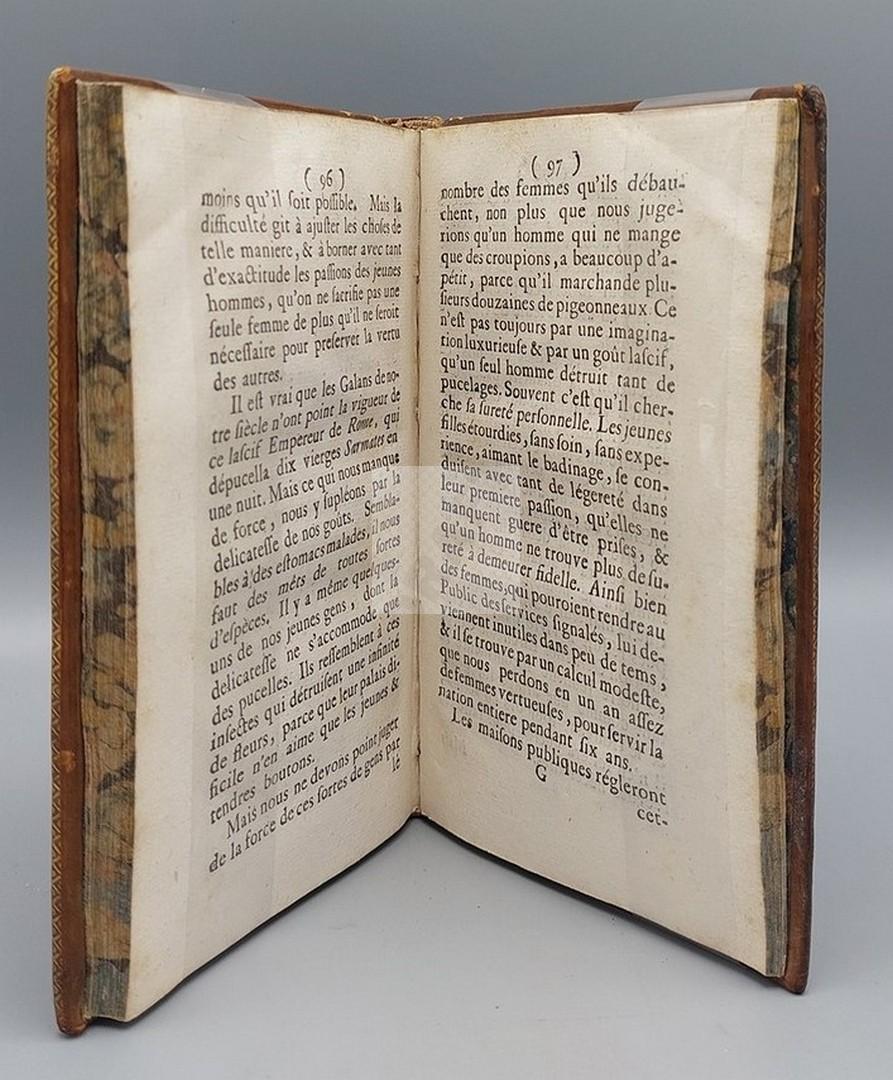 ( 96 )
moins qu'il ſoit poſſible. Mais la
difficulté git à ajuſter les choſes de
telle maniere, & à borner avec tant
d'exactitude les paſſions des jeunes
hommes, qu'on ne ſacrifie pas une
ſeule femme de plus qu'il ne ſeroit
néceſſaire pour preſerver la vertu
des autres.
Il eſt vrai que les Galans de no-
tre ſiècle n'ont point la vigueur de
ce laſcif Empereur de Rome, qui
dépucella dix vierges Sarmates en
une nuit. Mais ce qui nous manque
de force, nous y ſupléons par la
délicateſſe de nos goûts. Sembla-
bles à des eſtomacs malades, il nous
faut des mèts de toutes ſortes
d'eſpèces. Il y a même quelques-
uns de nos jeunes gens, dont la
délicateſſe ne s'accommode que
des pucelles. Ils reſſemblent à ces
inſectes qui détruiſent une infinité
de fleurs, parce que leur palais di-
ficile n'en aime que les jeunes &
tendres boutons.
Mais nous ne devons point juger
de la force de ces ſortes de gens par
le
( 97 )
nombre des femmes qu'ils débau-
chent, non plus que nous juge-
rions qu'un homme qui ne mange
que des croupions, a beaucoup d'a-
pétit, parce qu'il marchande plu-
ſieurs douzaines de pigeonneaux. Ce
n'eſt pas toujours par une imagina-
tion luxurieuſe & par un goût laſcif,
qu'un ſeul homme détruit tant de
pucelages. Souvent c'eſt qu'il cher-
che ſa ſureté perſonnelle. Les jeunes
filles étourdies, ſans ſoin, ſans expe-
rience, aimant le badinage, ſe con-
duiſent avec tant de légereté dans
leur premiere paſſion, qu'elles ne
manquent guere d'être priſes, &
qu'un homme ne trouve plus de ſu-
reté à demeurer fidelle. Ainſi bien
des femmes, qui pouroient rendre au
Public des ſervices ſignalés, lui de-
viennent inutiles dans peu de tems,
& il ſe trouve par un calcul modeſte,
que nous perdons en un an aſſez
de femmes vertueuſes, pour ſervir la
nation entiere pendant ſix ans.
Les maiſons publiques régleront
G
cet-